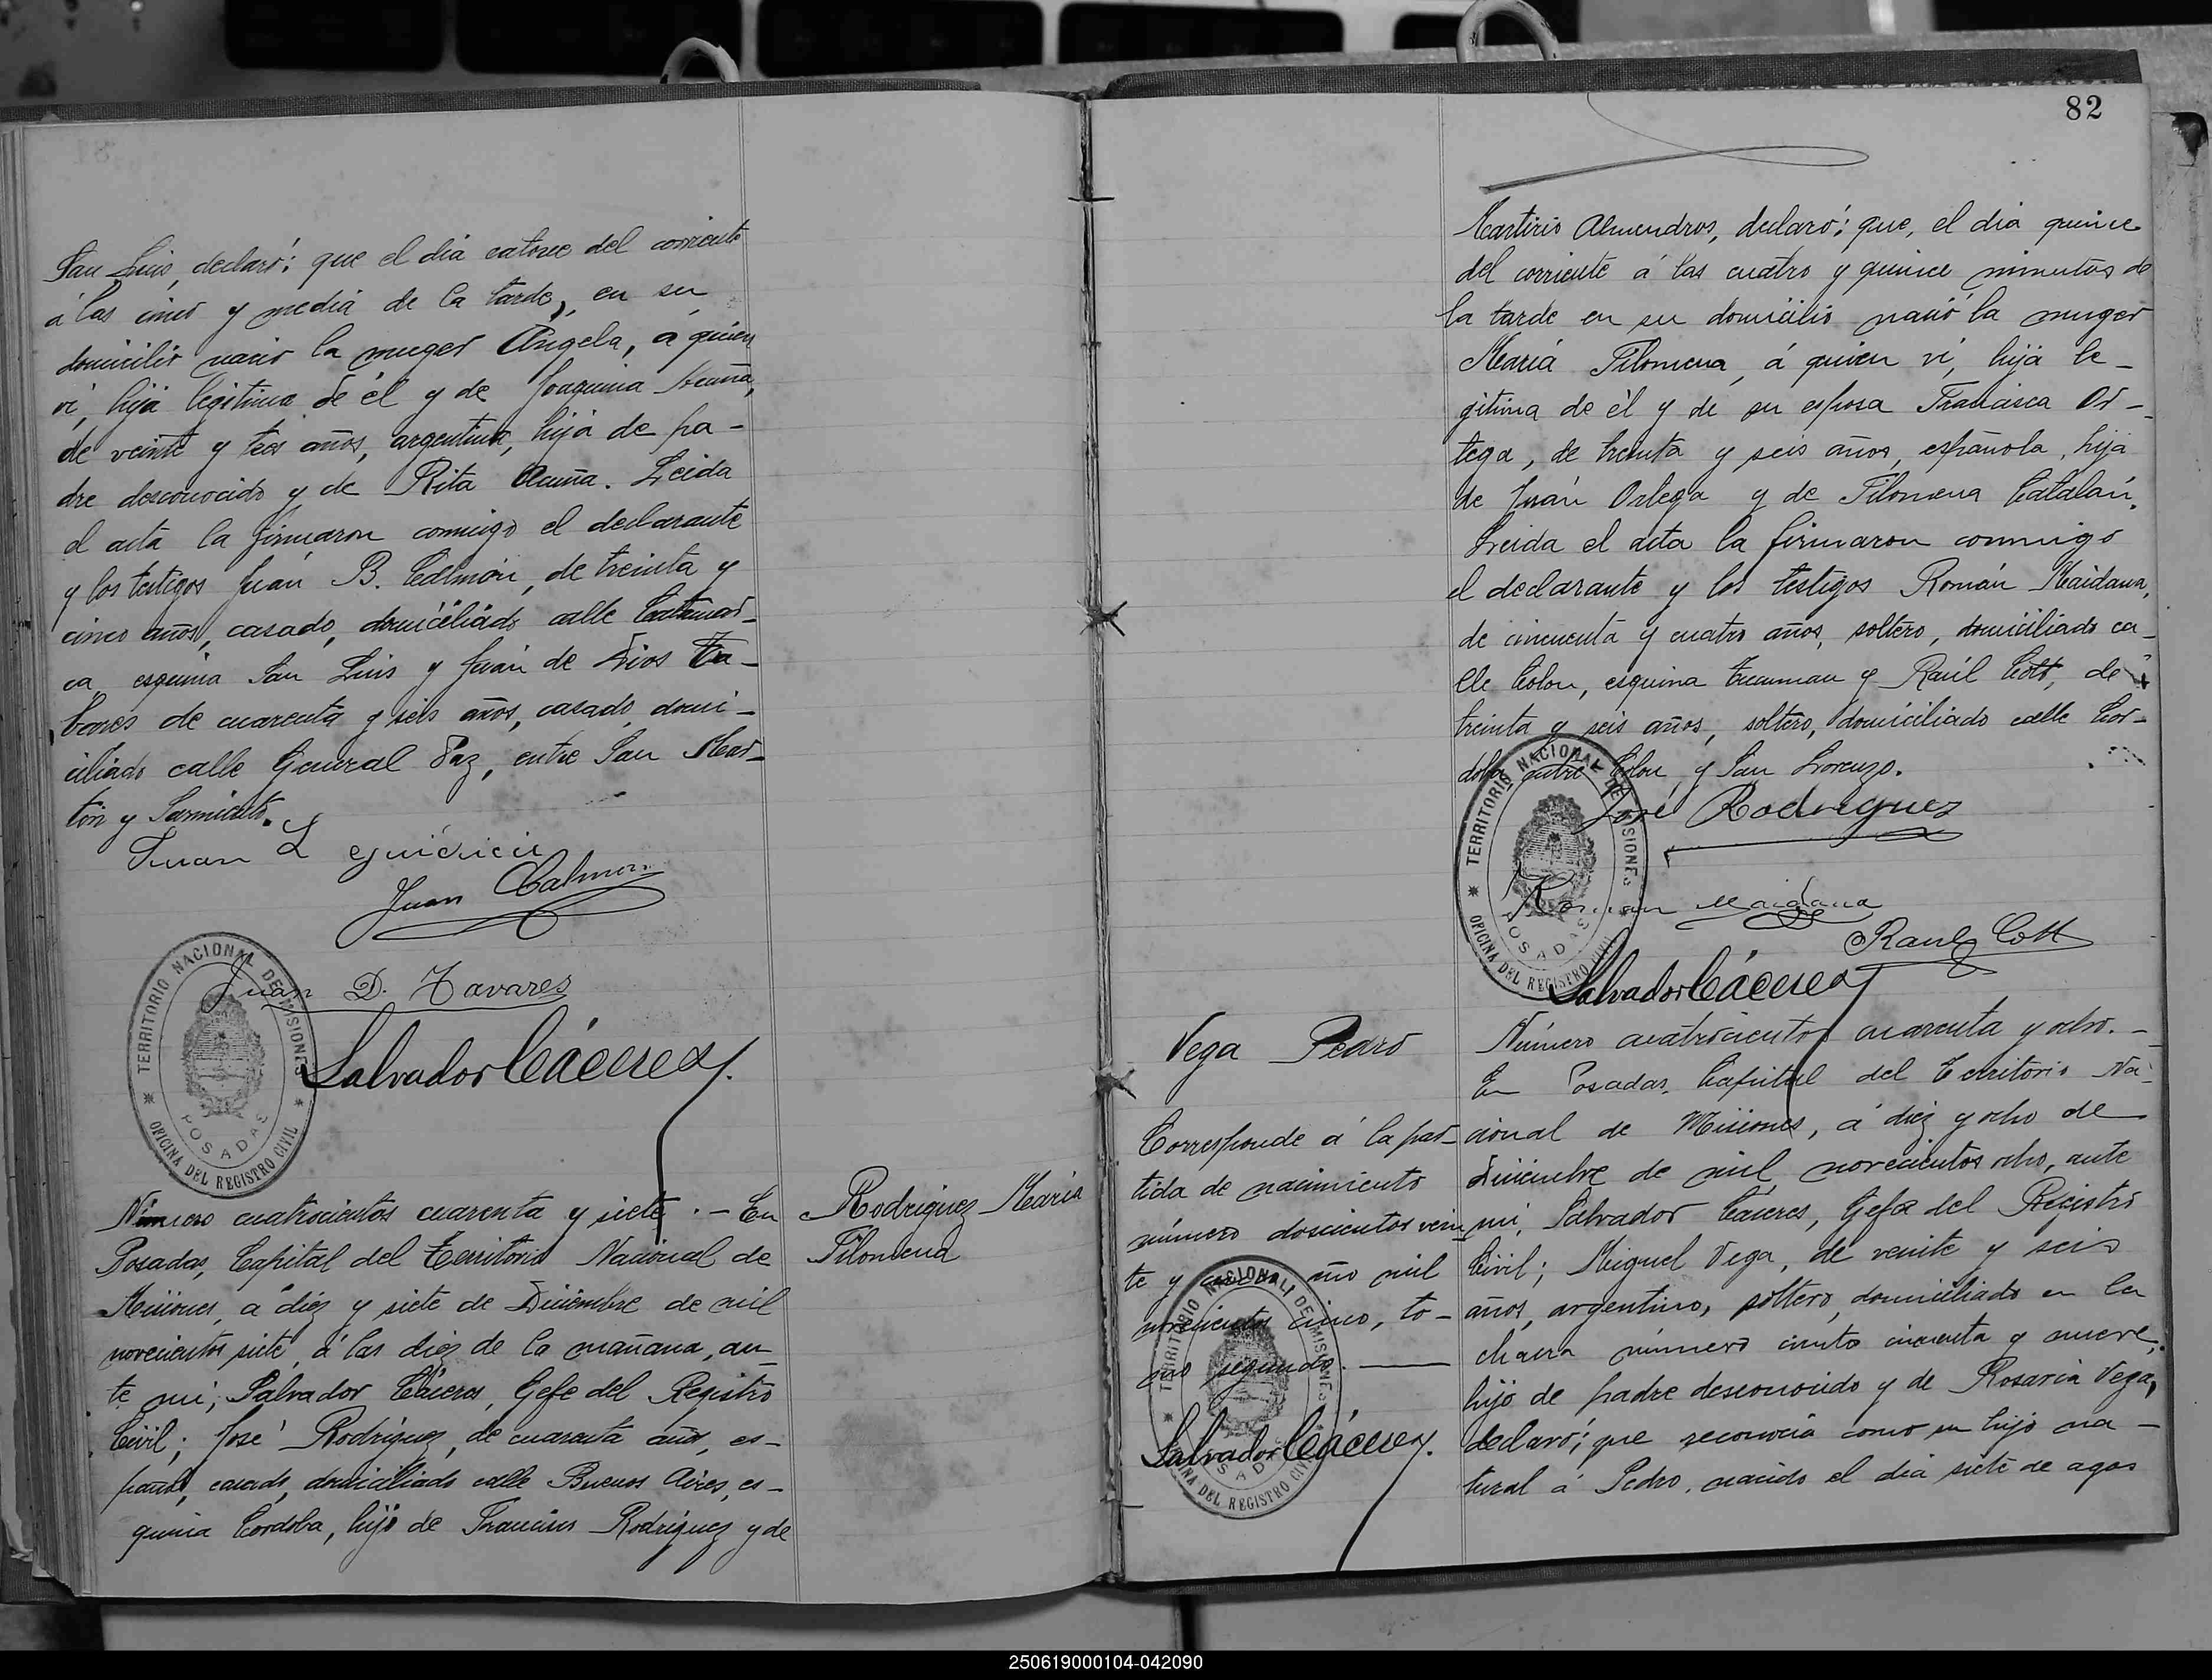 San Luis, declaró: que el dia catorce del corriente
á las cinco y media de la tarde, en su
domicilio nació la muger Angela, á quien
ví, hija legitima de él y de Joaquina Acuña,
de veinte y tres años, argentina, hija de pa-
dre desconocido y de Rita Acuña. Leida
el acta la firmaron conmigo el declarante
y los testigos Juan B. Calmon, de treinta y
cinco años, casado, domiciliado calle Catamar-
ca esquina San Luis y Juan de Dios Ta-
bares de cuarenta y seis años, casado, domi-
ciliado calle General Paz, entre San Mar-
tin y Sarmiento.
Juan
Juan Calmon
Juan D. Tavares
Salvador Cáceres
TERRITORIO NACIONAL DE MISIONES
POSADAS
OFICINA DEL REGISTRO CIVIL
Rodriguez Maria
Filomena
Número cuatrocientos cuarenta y siete.- En
Posadas, Capital del Territorio Nacional de
Misiones, á diez y siete de Diciembre de mil
novecientos siete, á las diez de la mañana, an-
te mi, Salvador Cáceres, Gefe del Registro
Civil; José Rodriguez, de cuarenta años, es-
pañol, casado, domiciliado calle Buenos Aires, es-
quina Cordoba, hijo de Francisco Rodriguez y de
82
Martirio Almendros, declaró: que, el dia quince
del corriente á las cuatro y quince minutos de
la tarde en su domicilio nació la muger
María Filomena, á quien ví, hija le-
gitima de él y de su esposa Francisca Or-
tega, de treinta y seis años, española, hija
de Juan Ortega y de Filomena Catalán.
Leida el acta la firmaron conmigo
el declarante y los testigos Román Maidana,
de cincuenta y cuatro años, soltero, domiciliado ca-
lle Colon, esquina Tucuman y Raúl Cott, de
treinta y seis años, soltero, domiciliado calle Cor-
doba entre Colon y San Lorenzo.
José Rodriguez
Roman Maidana
Raul Cott
Salvador Cáceres
TERRITORIO NACIONAL DE MISIONES
POSADAS
OFICINA DEL REGISTRO CIVIL
Vega Pedro
Corresponde á la par-
tida de nacimiento
número doscientos vein-
te y año mil
novecientos cinco, to-
mo segundo.
Salvador Cáceres.
TERRITORIO NACIONAL DE MISIONES
POSADAS
OFICINA DEL REGISTRO CIVIL
Número cuatrocientos cuarenta y ocho.-
En Posadas, Capital del Territorio Na-
cional de Misiones, á diez y ocho de
Diciembre de mil novecientos ocho, ante
mi, Salvador Cáceres, Gefe del Registro
Civil; Miguel Vega, de veinte y seis
años, argentino, soltero, domiciliado en la
chacra número ciento cincuenta y nueve,
hijo de padre desconocido y de Rosaria Vega,
declaró; que reconocia como su hijo na-
tural á Pedro, nacido el dia siete de agos
250619000104-042090